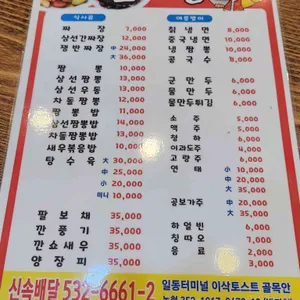 식사류
짜장 7,000
삼선간짜장 12,000
쟁반짜장 中 24,000
大 36,000
짬뽕 10,000
삼선짬뽕 13,000
차돌짬뽕 13,000
짬뽕밥 11,000
삼선짬뽕밥 14,000
차돌짬뽕밥 14,000
새우볶음밥 10,000
탕수육 大 30,000
中 25,000
小 20,000
미니 10,000
팔보채 35,000
깐풍기 35,000
깐쇼새우 35,000
양장피 35,000
여름별미
칡냉면 8,000
중국냉면 10,000
냉짬뽕 10,000
콩국수 8,000
군만두 6,000
물만두 6,000
물만두튀김 6,000
소주 5,000
맥주 5,000
청하 6,000
이과도주 4,000
고량주 6,000
연태 小 10,000
中 20,000
大 35,000
공보가주 中 20,000
大 35,000
하얼빈 6,000
칭따오 6,000
음료 2,000
신속배달 532-6661-2
일동터미널 이삭토스트 골목안